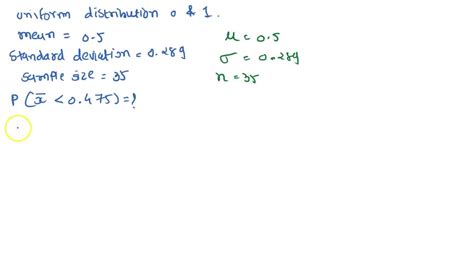 uniform distribution 0 & 1.
mean = 0.5
μ = 0.5
standard deviation = 0.289
σ = 0.289
sample size = 35
n = 35
P(x̄ < 0.475) = ?